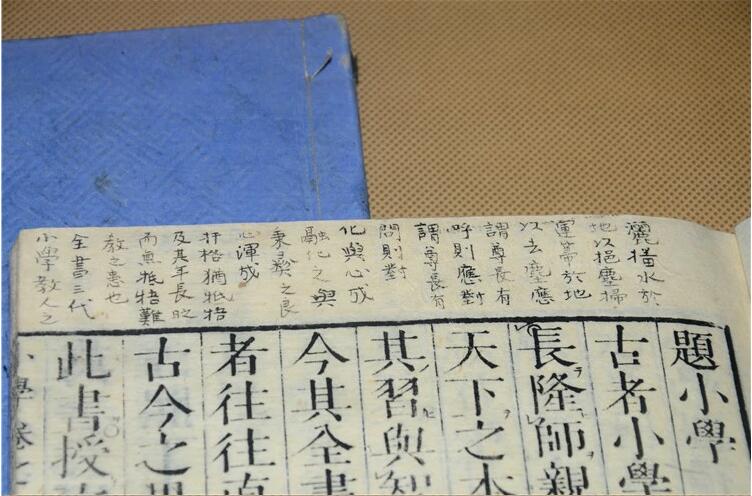 灑播水於
地以挹塵掃
運帚於地
以去塵應
謂尊長有
呼則應對
謂尊長有
問則對
化與心成
融化之與
秉彝之良
心渾成
扞格猶牴牾
及其年長
而無牴牾難
教之患也
全書三代
小學教人之
題小學
古者小學
長隆師親
天下之本
其習與智
今其全書
者往往直
古今之異
此書授
小學卷之